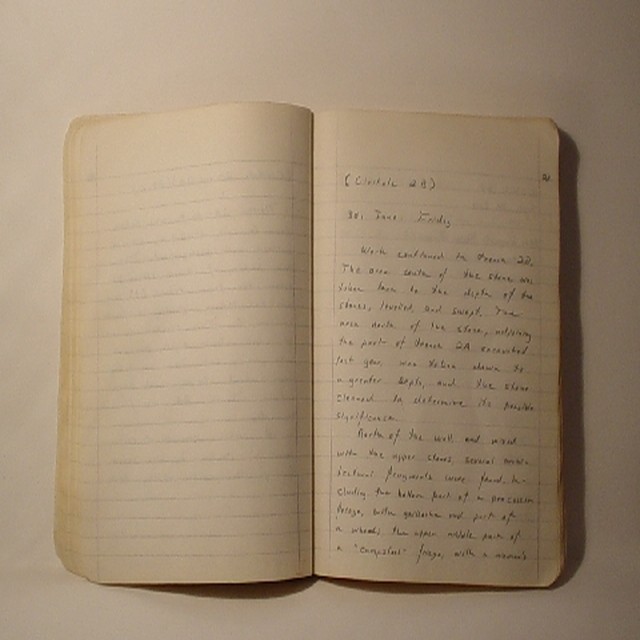 (Clerkele 2B)
21
30. June. Friday
Work continued in trench 2B.
The area south of the stone was
taken down to the depth of the
stones, leveled, and swept. The
area north of the stone, adjoining
the part of trench 2A excavated
last year, was taken down to
a greater depth, and the stone
cleaned to determine its possible
significance.
North of the wall and mixed
with the upper stones, several archi-
tectural fragments were found in-
cluding the bottom part of a procession
frieze, with guilloche and part of
a wheel; the upper middle part of
a "campstool" frieze, with a woman's